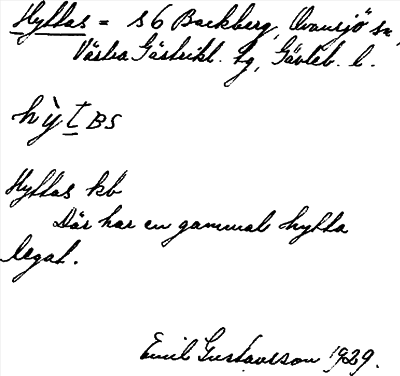 Hyttas = s 6 Backberg, Ovansjö sn,
Västra Gästrikl. tg, Gävleb. l.
hỳt BS
Hyttas kb
Där har en gammal hytta
legat.
Emil Gustavsson 1929.